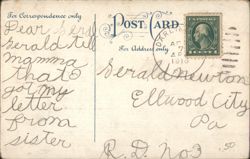 For Correspondence only
POST CARD
For Address only
Dear
Gerald tell
mamma
that
got my
letter
from
sister
Gerald Newton
Ellwood City
Pa
R.D. No 3